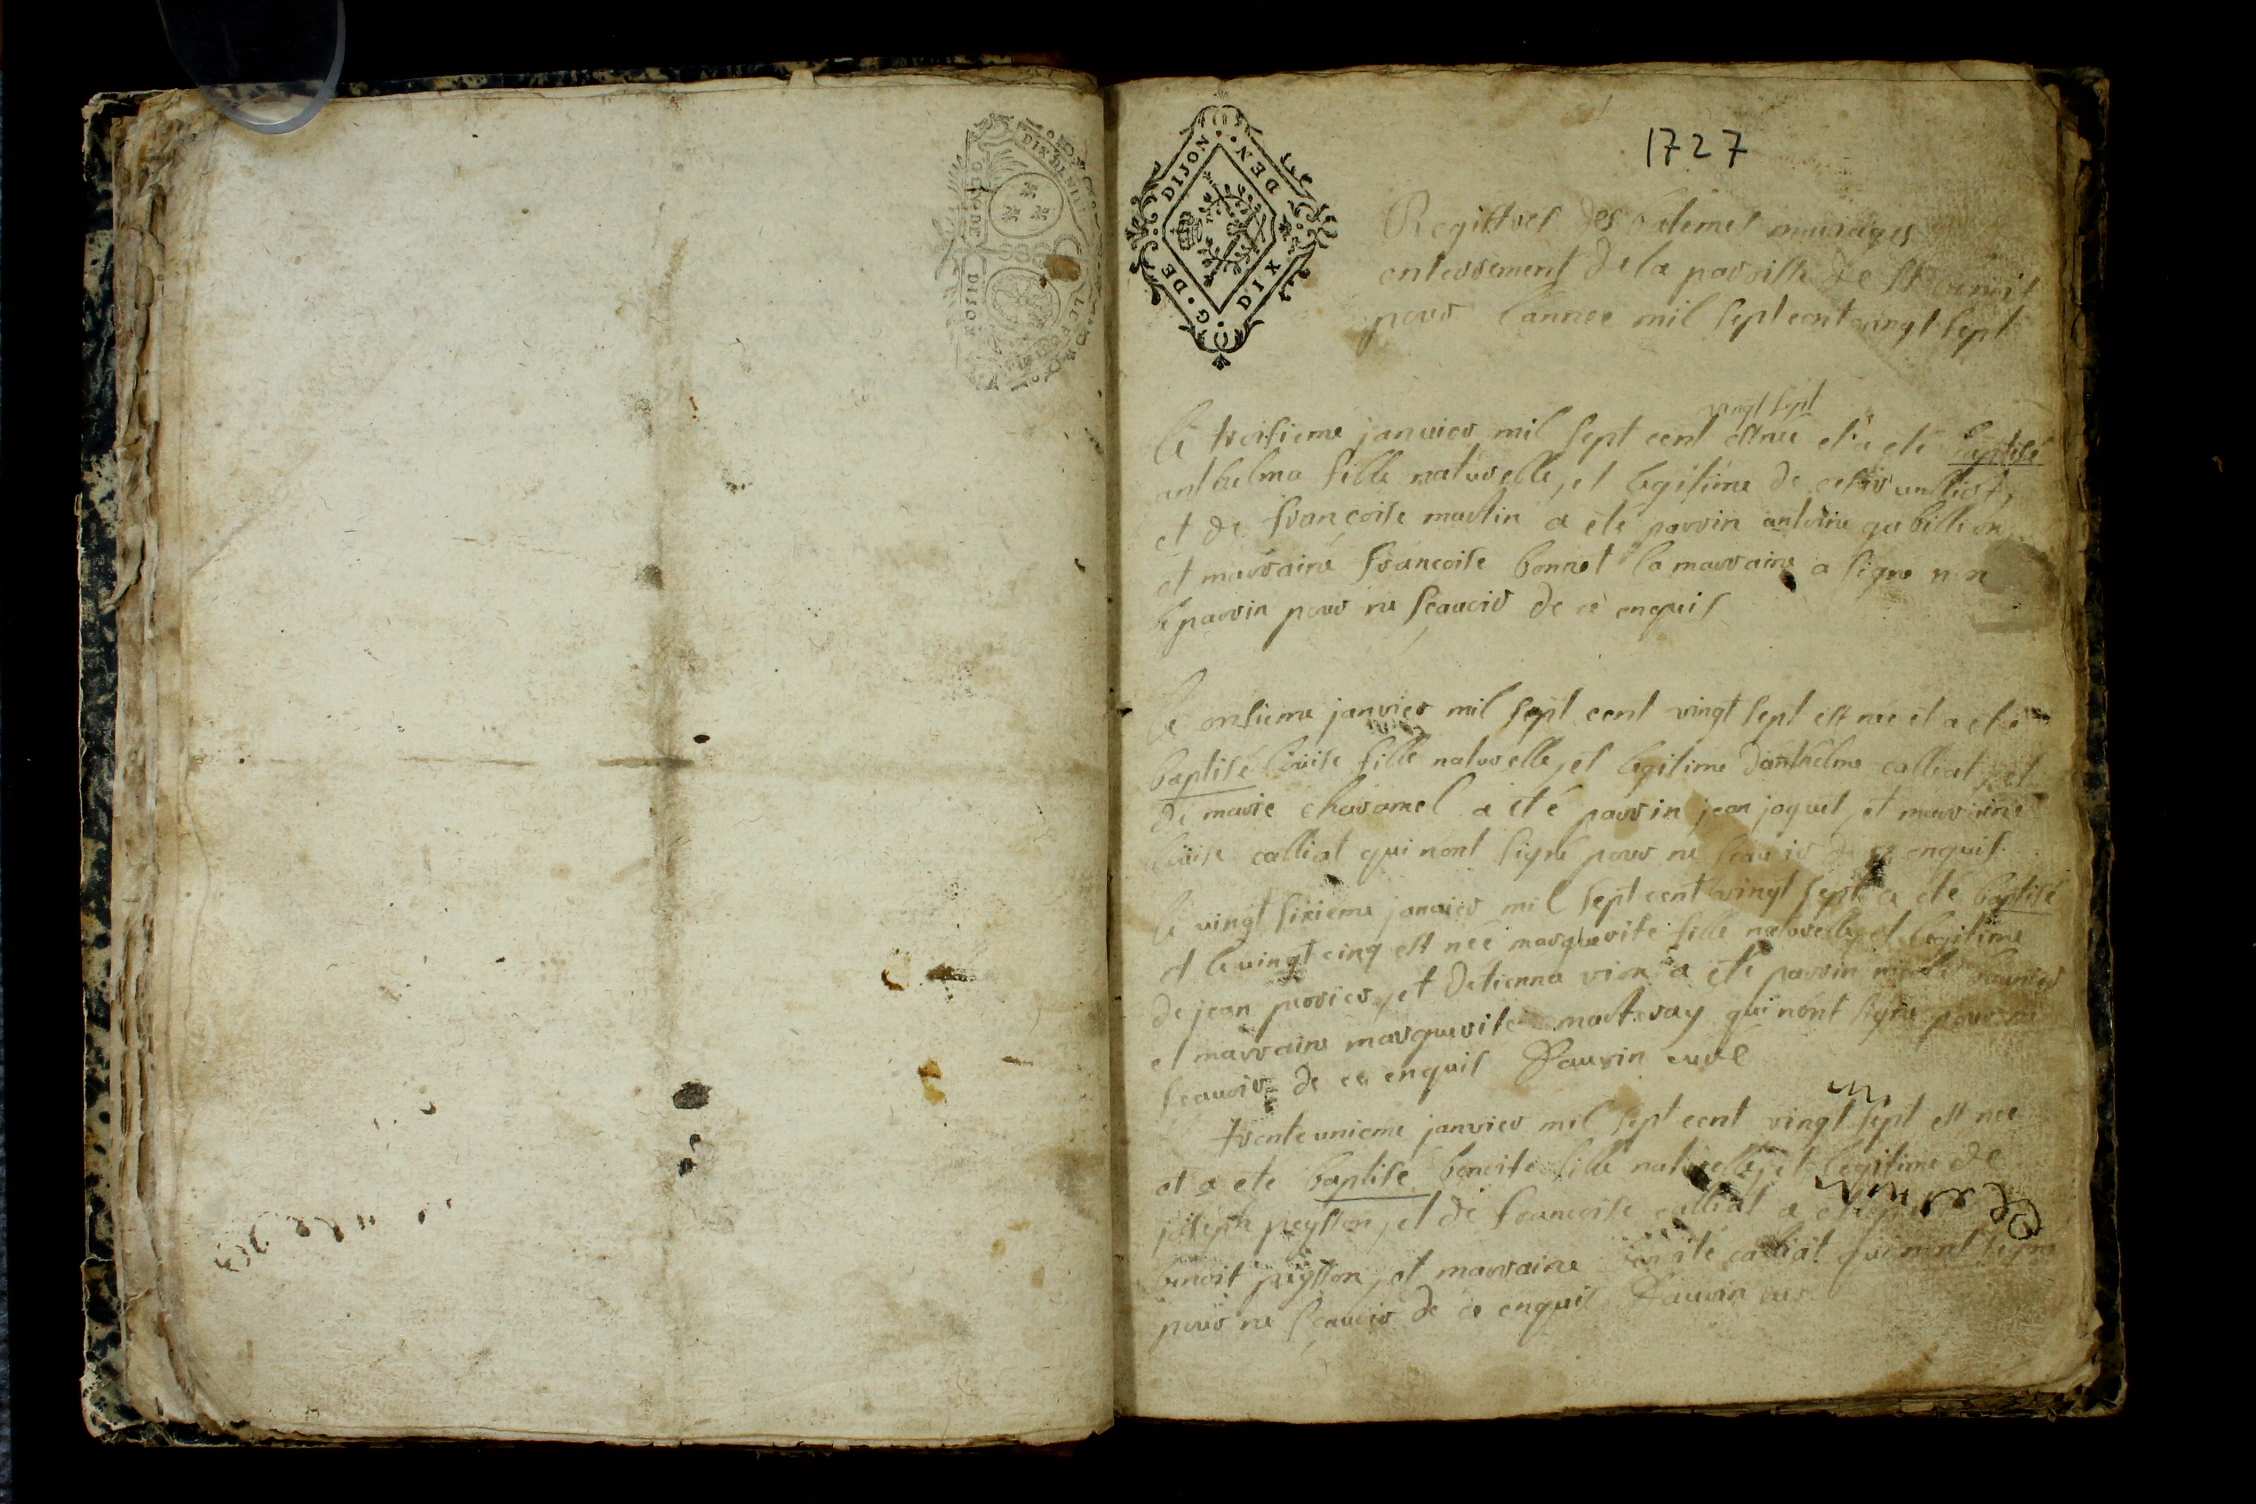 DIX DEN
G EN DE
DIJON
G. DE DIJON. DIX DEN
1727
Registres des batemes mariages
enterrement de la paroisse de St benoit
pour l'annee mil sept cent vingt sept
vingt sept
le troisieme janvier mil sept cent est née et a eté baptisé
anthelma fille naturelle, et legitime de
et de françoise martin a eté parrin antoine gabillion
et marraine francoise bonnet la marraine a signe non
le parrin pour ne sçavoir de ce enquis
le onsieme janvier mil sept cent vingt sept est nee et a eté
baptisé loüise fille naturelle, et legitime danthelme calliat, et
de marie charamel a eté parrin jean jaquet, et marraine
loüise calliat qui nont signé pour ne scavoir de ce enquis
le vingt sixieme janvier mil sept cent vingt sept a eté baptisé
et le vingt cinq est neé marguerite fille naturelle, et legitime
de jean perrier, et detienna vion a eté parrin
et marraine marguerite marteray qui nont signe pour ne
scavoir de ce enquis Paurin curé
trente unieme janvier mil sept cent vingt sept est nee
et a ete baptise benoite fille naturelle, et legitime de
joseph peysson, et de francoise calliat a eté
benoit peysson, et marraine calliat qui nont signe
pour ne sçavoir de ce enquis Paurin cure